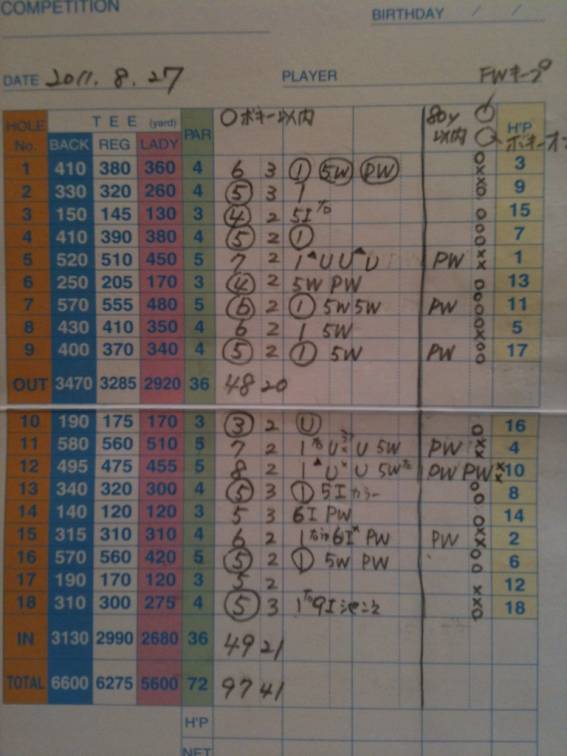 COMPETITION
BIRTHDAY / /
DATE 2011.8.27 PLAYER FWキープ
HOLE No. TEE (yard) BACK REG LADY PAR ○ボギー以内 80y以内 H'P
1 410 380 360 4 6 3 1 5W PW 3
2 330 320 260 4 5 3 1 9
3 150 145 130 3 4 2 5I 15
4 410 390 380 4 5 2 1 7
5 520 510 450 5 7 2 1 U U U PW 1
6 250 205 170 3 4 2 5W PW 13
7 570 555 480 5 6 2 1 5W 5W PW 11
8 430 410 350 4 6 2 1 5W 5
9 400 370 340 4 5 2 1 5W PW 17
OUT 3470 3285 2920 36 48 20
10 190 175 170 3 3 2 U 16
11 580 560 510 5 7 2 1 U U 5W PW 4
12 495 475 455 5 8 2 1 U U 5W PW PW 10
13 340 320 300 4 5 3 1 5I カラー 8
14 140 120 120 3 5 3 6I PW 14
15 315 310 310 4 6 2 1 6I PW PW 2
16 570 560 420 5 5 2 1 5W PW 6
17 190 170 120 3 5 2 12
18 310 300 275 4 5 3 1 9I 18
IN 3130 2990 2680 36 49 21
TOTAL 6600 6275 5600 72 97 41
H'P
NET